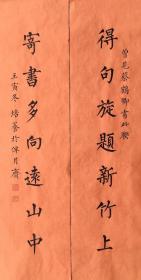 曾見蔡鶴卿書此聯
得句旋題新竹上
寄書多向遠山中
壬寅冬 培養於伴月齋